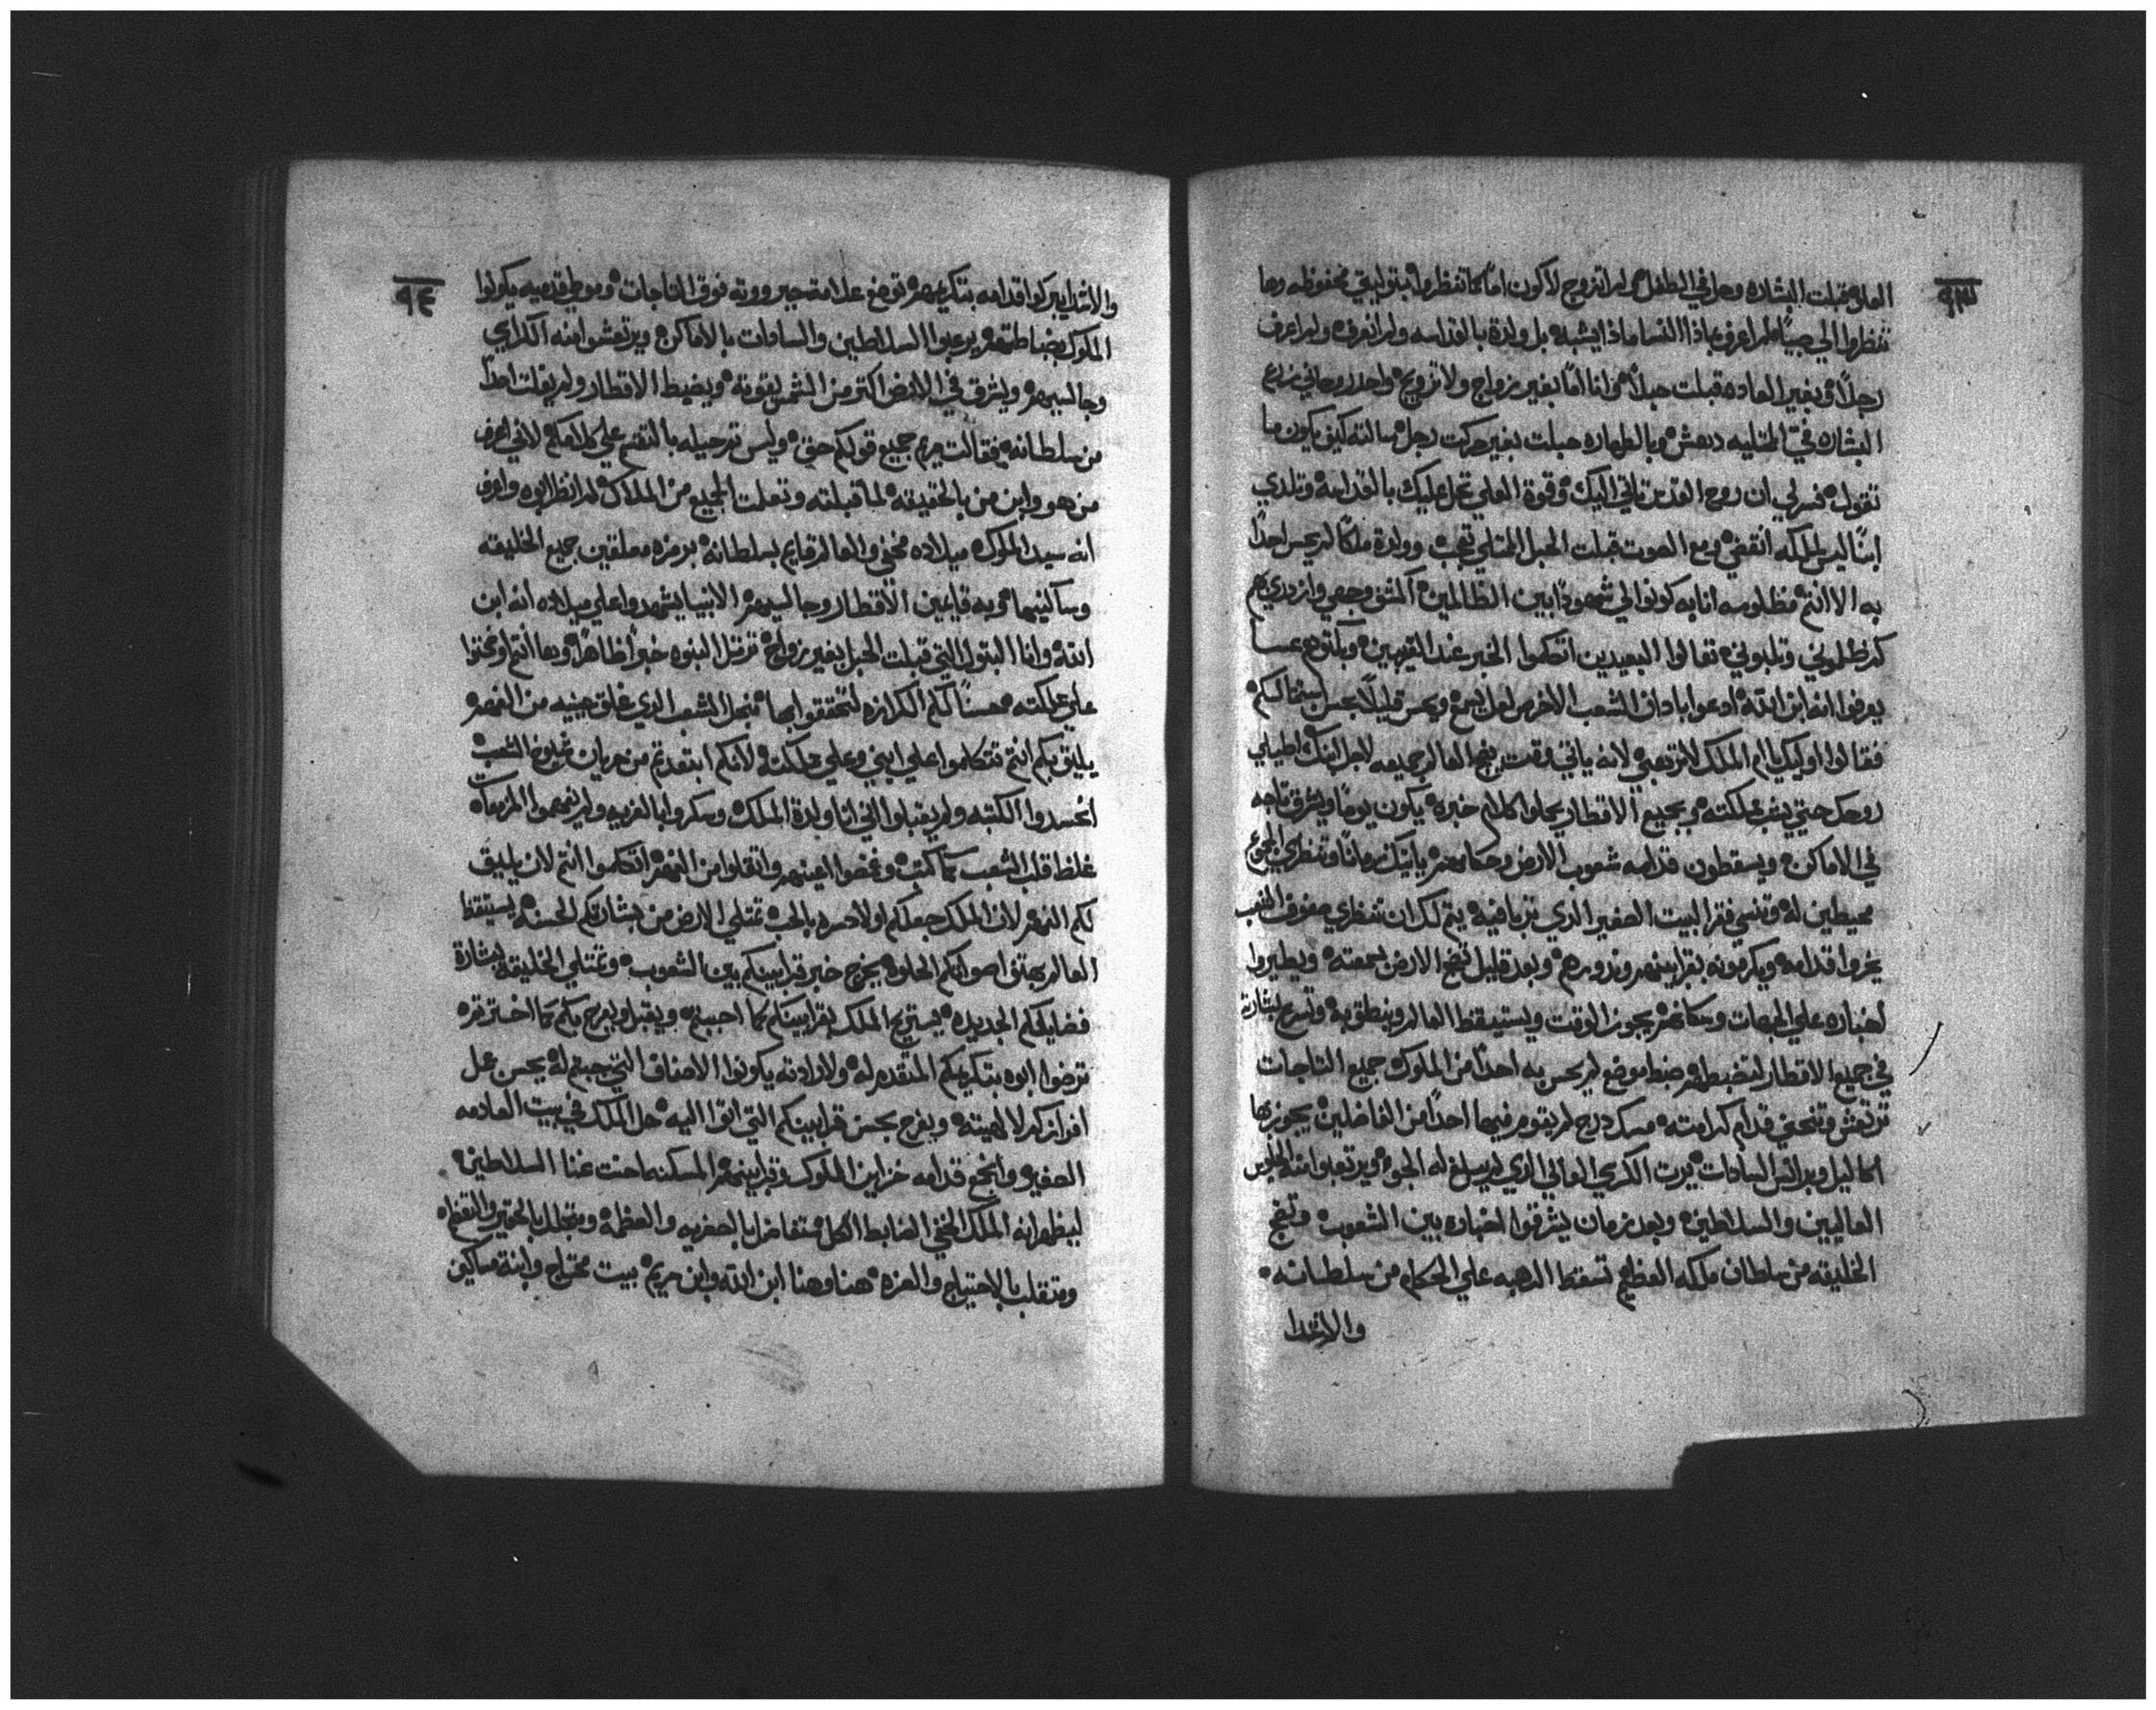 ٩٣
العلي قبلت البشاره وحل في الطفل ولم اتزوج لاكون اماً كما تنظروا بتوليتي محفوظه وها
تنظروا الي صبياً لم اعرف بماذا النسا ماذا يشبه بل ولدة بالقداسه ولم انعرف ولم اعرف
رجلاً وبغير العاده قبلت حبلاً وانا اماً بغير زواج ولا تزويج واحد روحاني زرع
البشاره في المتليه دهش وبالطهاره حبلت بغير حركت رجل سالته كيف يكون ما
تقول فسر لي ان روح القدس تاتي اليك وقوة العلي تحل عليك بالقداسه وتلدي
ابناً ليس لملكه انقضي ومع الصوت قبلت الحبل الممتلي تعجب وولدة ملكاً لم يحس احداً
به الا انتم مظلومه انا به كونوا لي شهوداً بين الظالمين اكشف وجهي وازدري بهم
كم ظلموني وتلبوني تعالوا البعيدين اتكلموا الخبر عند القريبين وبكلتوهم عسا
يعرفوا انه ابن الله ادعوا باداف الشعب الاخرس لعل يسمع ويحس قليلاً بحسن اسفالكم
فقالوا اوليك يا ام الملك لا ترهبي لانه ياتي وقت ينجح العالم جميعه لاجل ابنك اطيلي
روحك حتي يثبت مملكته وبجميع الاقطار يحلوا كلام خبره يكون يوماً ويشرق تاجه
في الاماكن ويسقطون قدامه شعوب الارض وحكامهم ياتيك زماناً وتنظري الجموع
محيطين له وتنسي فقر البيت الصغير الذي تربا فيه يتم لك ان تنظري صفوف الشعب
يخروا قدامه ويكرمونه بقرابينهم ونذورهم وبعد قليل تضج الارض بسمعته ويطيروا
اخباره علي الجهات وسكانهم يجوز الوقت ويستيقظ العالم وينطق به وتسرع بشارته
في جميع الاقطار لتضبطهم ضبط موضع لم يحس به احداً من الملوك جميع التاجات
ترتعش وتنحني قدام كرامته مسك درج لم يقوم فيها احداً من الفاضلين يجوز بها
اكاليل وبرانس السادات يرت الكرسي العالي الذي لم يبلغ له الجو ويرتعبوا منه الجلوس
العاليين والسلاطين وبعد زمان يشرقوا اخباره بين الشعوب وتنج
الخليقه من سلطان ملكه العظيم تسقط الرهبه علي الحكام من سلطانه
والاشدا
٩٤
والاشدا يبركوا قدامه بتكريمهم توضع علامت جبرووته فوق التاجات وموطي قدميه يكونوا
الملوك بضابطتهم يرعبوا السلاطين والسادات بالاماكن ويرتعشوا منه الكراسي
وجالسيهم ويشرق في الارض اكتر من الشمس بقوته ويضبط الاقطار ولم يفلت احداً
من سلطانه فقالت مريم جميع قولكم حق وليس ترحيله بالتقسم علي كلامكم لاني اعرف
من هو وابن من بالحقيقه لما قبلته وتعلمت الجميع من الملاك لم انظر ابوه واعرف
انه سيد الملوك ميلاده مخفي والعالم قايم بسلطانه برمزه معلقين جميع الخليقه
وساكنيها وبه قايمين الاقطار وجالسيهم الانبيا يشهدوا علي ميلاده انه ابن
الله وانا البتول التي قبلت الحبل بغير زواج ترتل النبوه خبراً ظاهراً وها انتم اونحتوا
علي مملكته محسناً لكم الكرازه لتحققوا بها فنجل الشعب الذي غلق جبنيه من الفهم
يليق بكم انتم تتكلموا علي ابني وعلي مملكته لانكم ابتعدتم من هديان شيوخ الشعب
انحسدوا الكتبه ولم يقبلوا اني انا ولدة الملك وسكروا بالفريه ولم يفهموا المزمعات
غلظ قلب الشعب كما كتب وغمضوا اعينهم واتقلوا من الفهم اتكلموا انتم لان يليق
لكم الفهم لان الملك جعلكم اولاد سره بالحب تمتلي الارض من بشارتكم الحسنه يستيقظ
العالم بهتو اصواتكم الحلوه يخرج خبر قرابينكم بين الشعوب وتمتلي الخليقه بشارة
فضايلكم الجديده يستريح الملك بقرابينكم كما احببتم ويقبل ويفرح بكم كما اخترتم
ترضوا ابوه بتكريمكم المتقدم له ولارادته يكونوا الاصناف التي جبتم له يحسن عمل
افرازكم لالهيته ويفرح بحسن قرابينكم التي اتوا اليه حل الملك في بيت العادمه
الصغيره وانجمع قدامه خزاين الملوك وقرابينهم المسكنه احنت عنا السلاطين
ليظهر انه الملك الخفي الضابط الكل متفاضل بالحقريه والعظمه ومتجلل بالحقير والتعظماه
ومتقلب بالاحتياج والعزه هنا وهنا ابن الله وابن مريم بيت محتاج وابنة مساكين